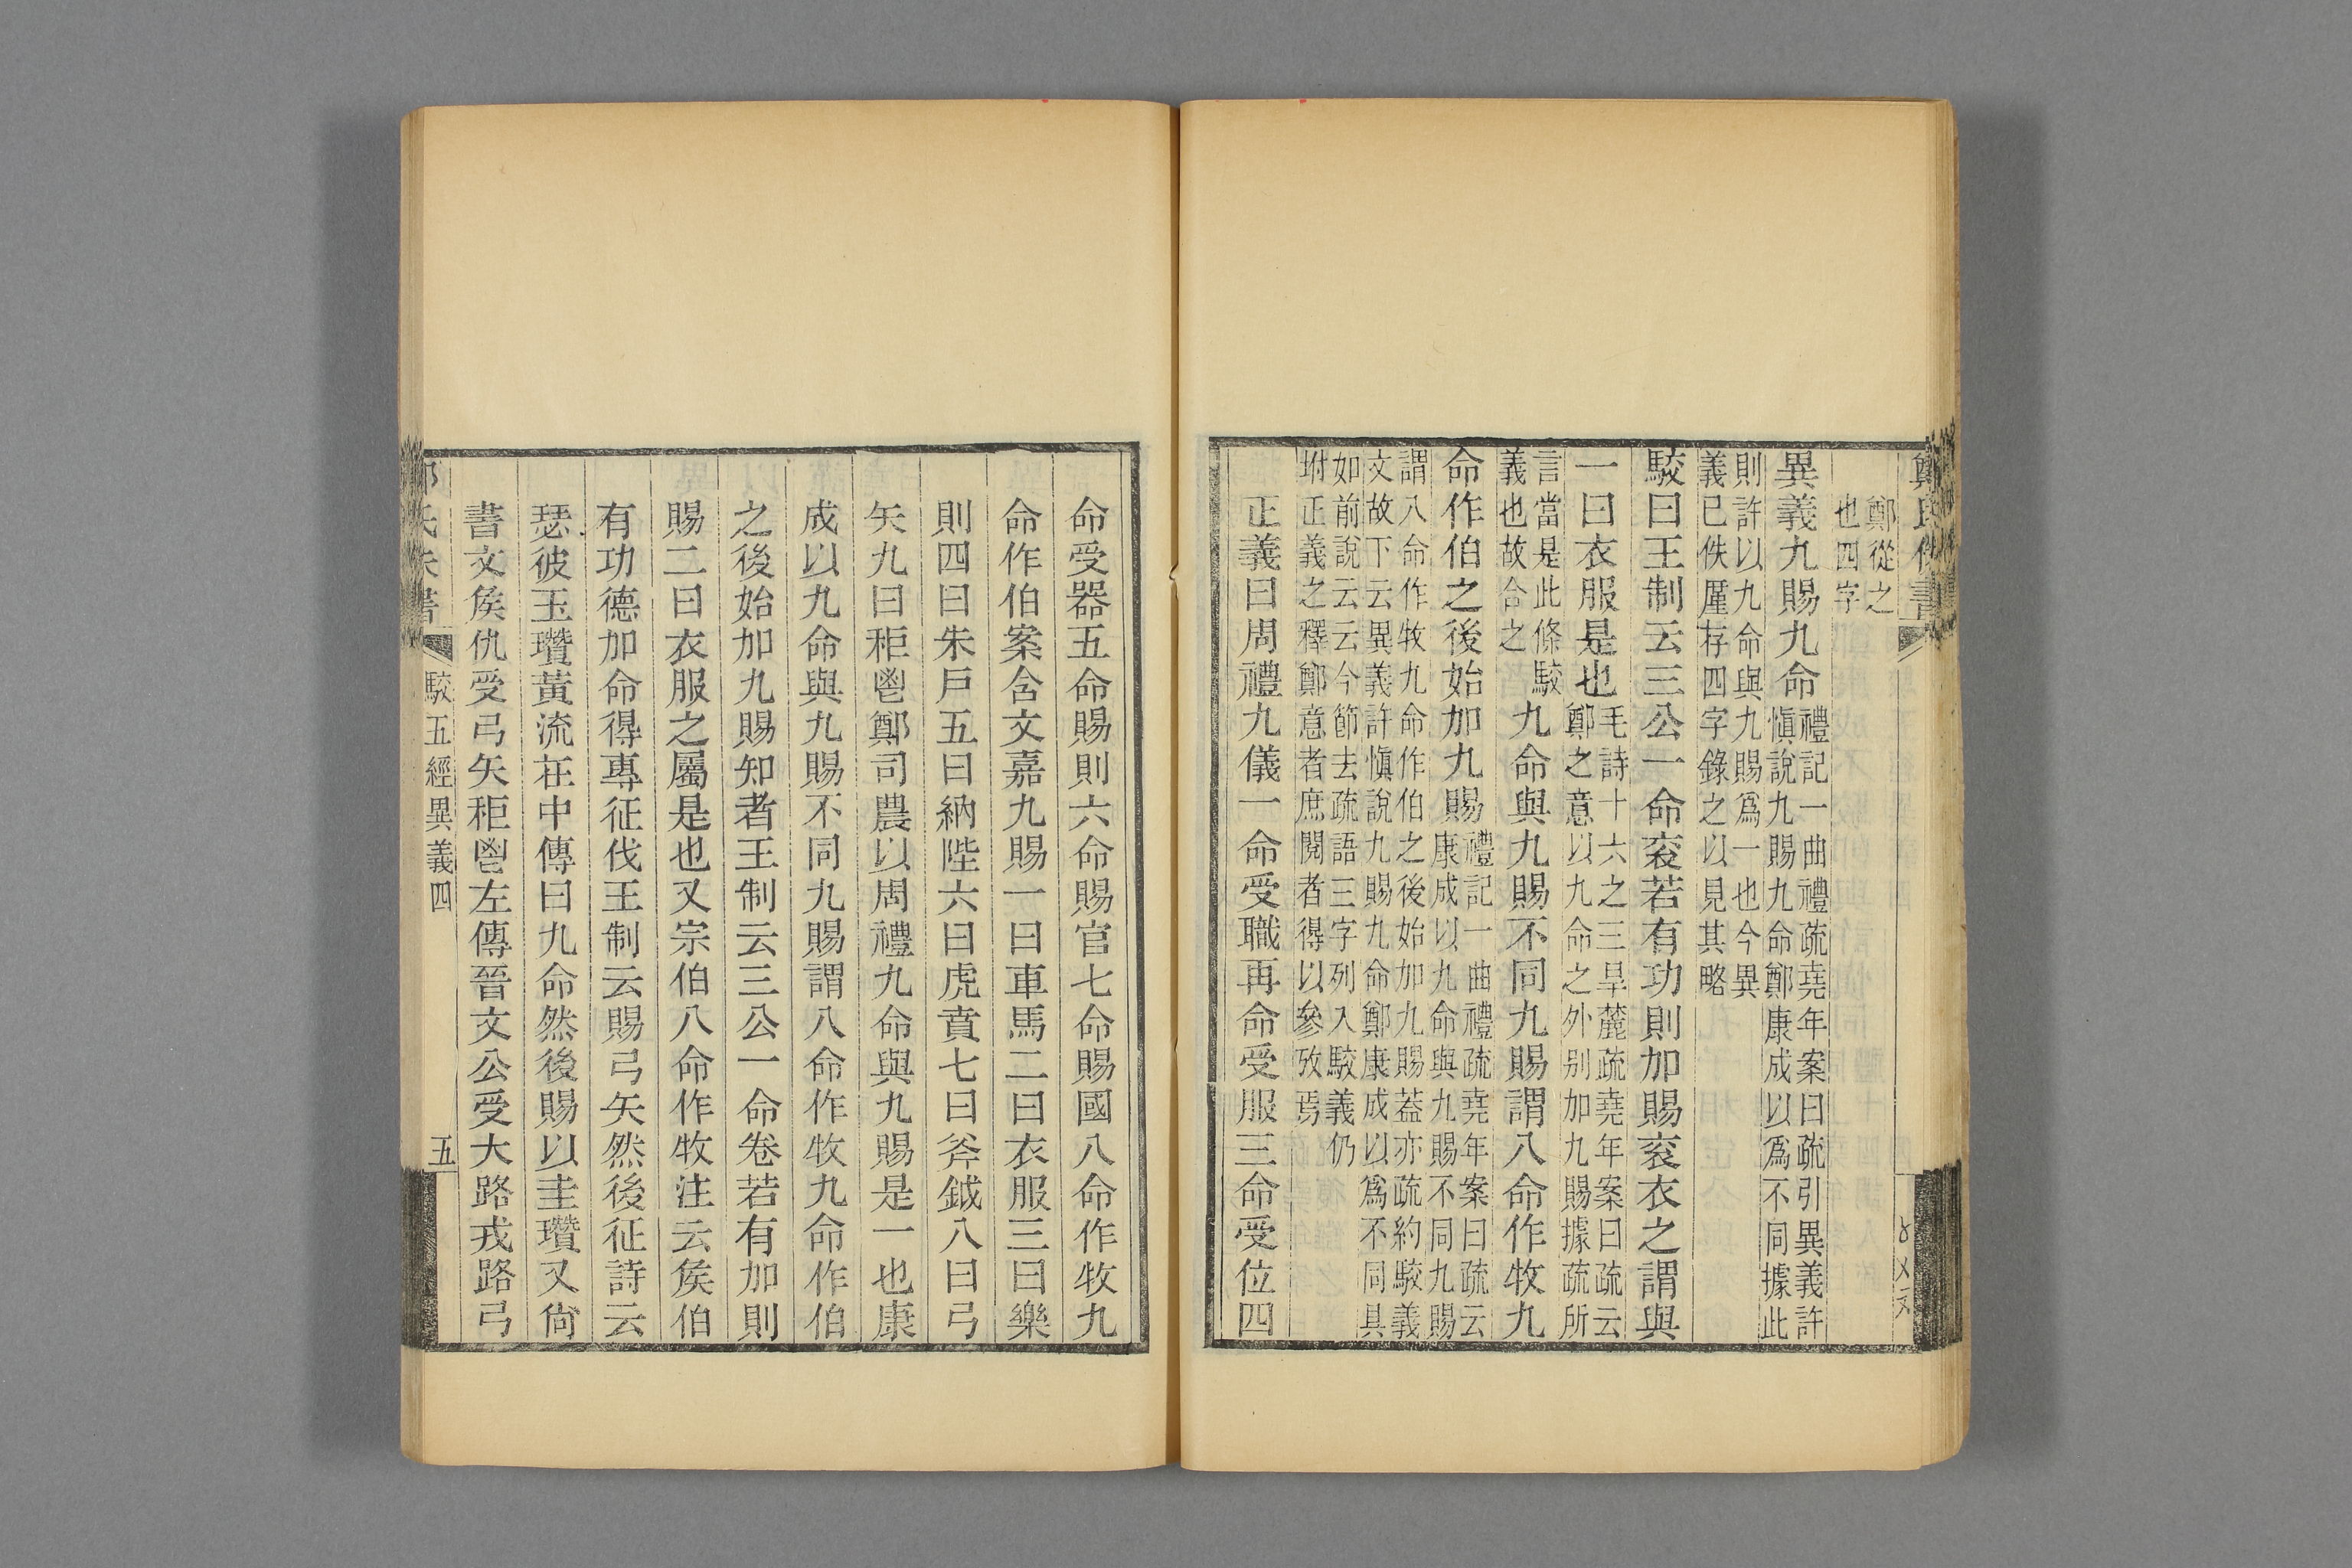 鄭氏佚書
鄭從之
也四字
異義九賜九命禮記一曲禮疏堯年案曰疏引異義許
愼說九賜九命鄭康成以爲不同據此
則許以九命與九賜爲一也今異
義已佚厪存四字錄之以見其略
駮曰王制云三公一命衮若有功則加賜衮衣之謂與
一曰衣服是也毛詩十六之三旱麓疏堯年案曰疏云
鄭之意以九命之外别加九賜據疏所
言當是此條駮
義也故合之
九命與九賜不同九賜謂八命作牧九
命作伯之後始加九賜禮記一曲禮疏堯年案曰疏云
康成以九命與九賜不同九賜
謂八命作牧九命作伯之後始加九賜葢亦疏約駮義
文故下云異義許愼說九賜九命鄭康成以爲不同具
如前說云云今節去疏語三字列入駮義仍
坿正義之釋鄭意者庶閱者得以參攷焉
正義曰周禮九儀一命受職再命受服三命受位四
命受器五命賜則六命賜官七命賜國八命作牧九
命作伯案含文嘉九賜一曰車馬二曰衣服三曰樂
則四曰朱戶五曰納陛六曰虎賁七曰斧鉞八曰弓
矢九曰秬鬯鄭司農以周禮九命與九賜是一也康
成以九命與九賜不同九賜謂八命作牧九命作伯
之後始加九賜知者王制云三公一命卷若有加則
賜二曰衣服之屬是也又宗伯八命作牧注云矦伯
有功德加命得專征伐王制云賜弓矢然後征詩云
瑟彼玉瓚黃流在中傳曰九命然後賜以圭瓚又尙
書文矦仇受弓矢秬鬯左傳晉文公受大路戎路弓
駮五經異義四
五